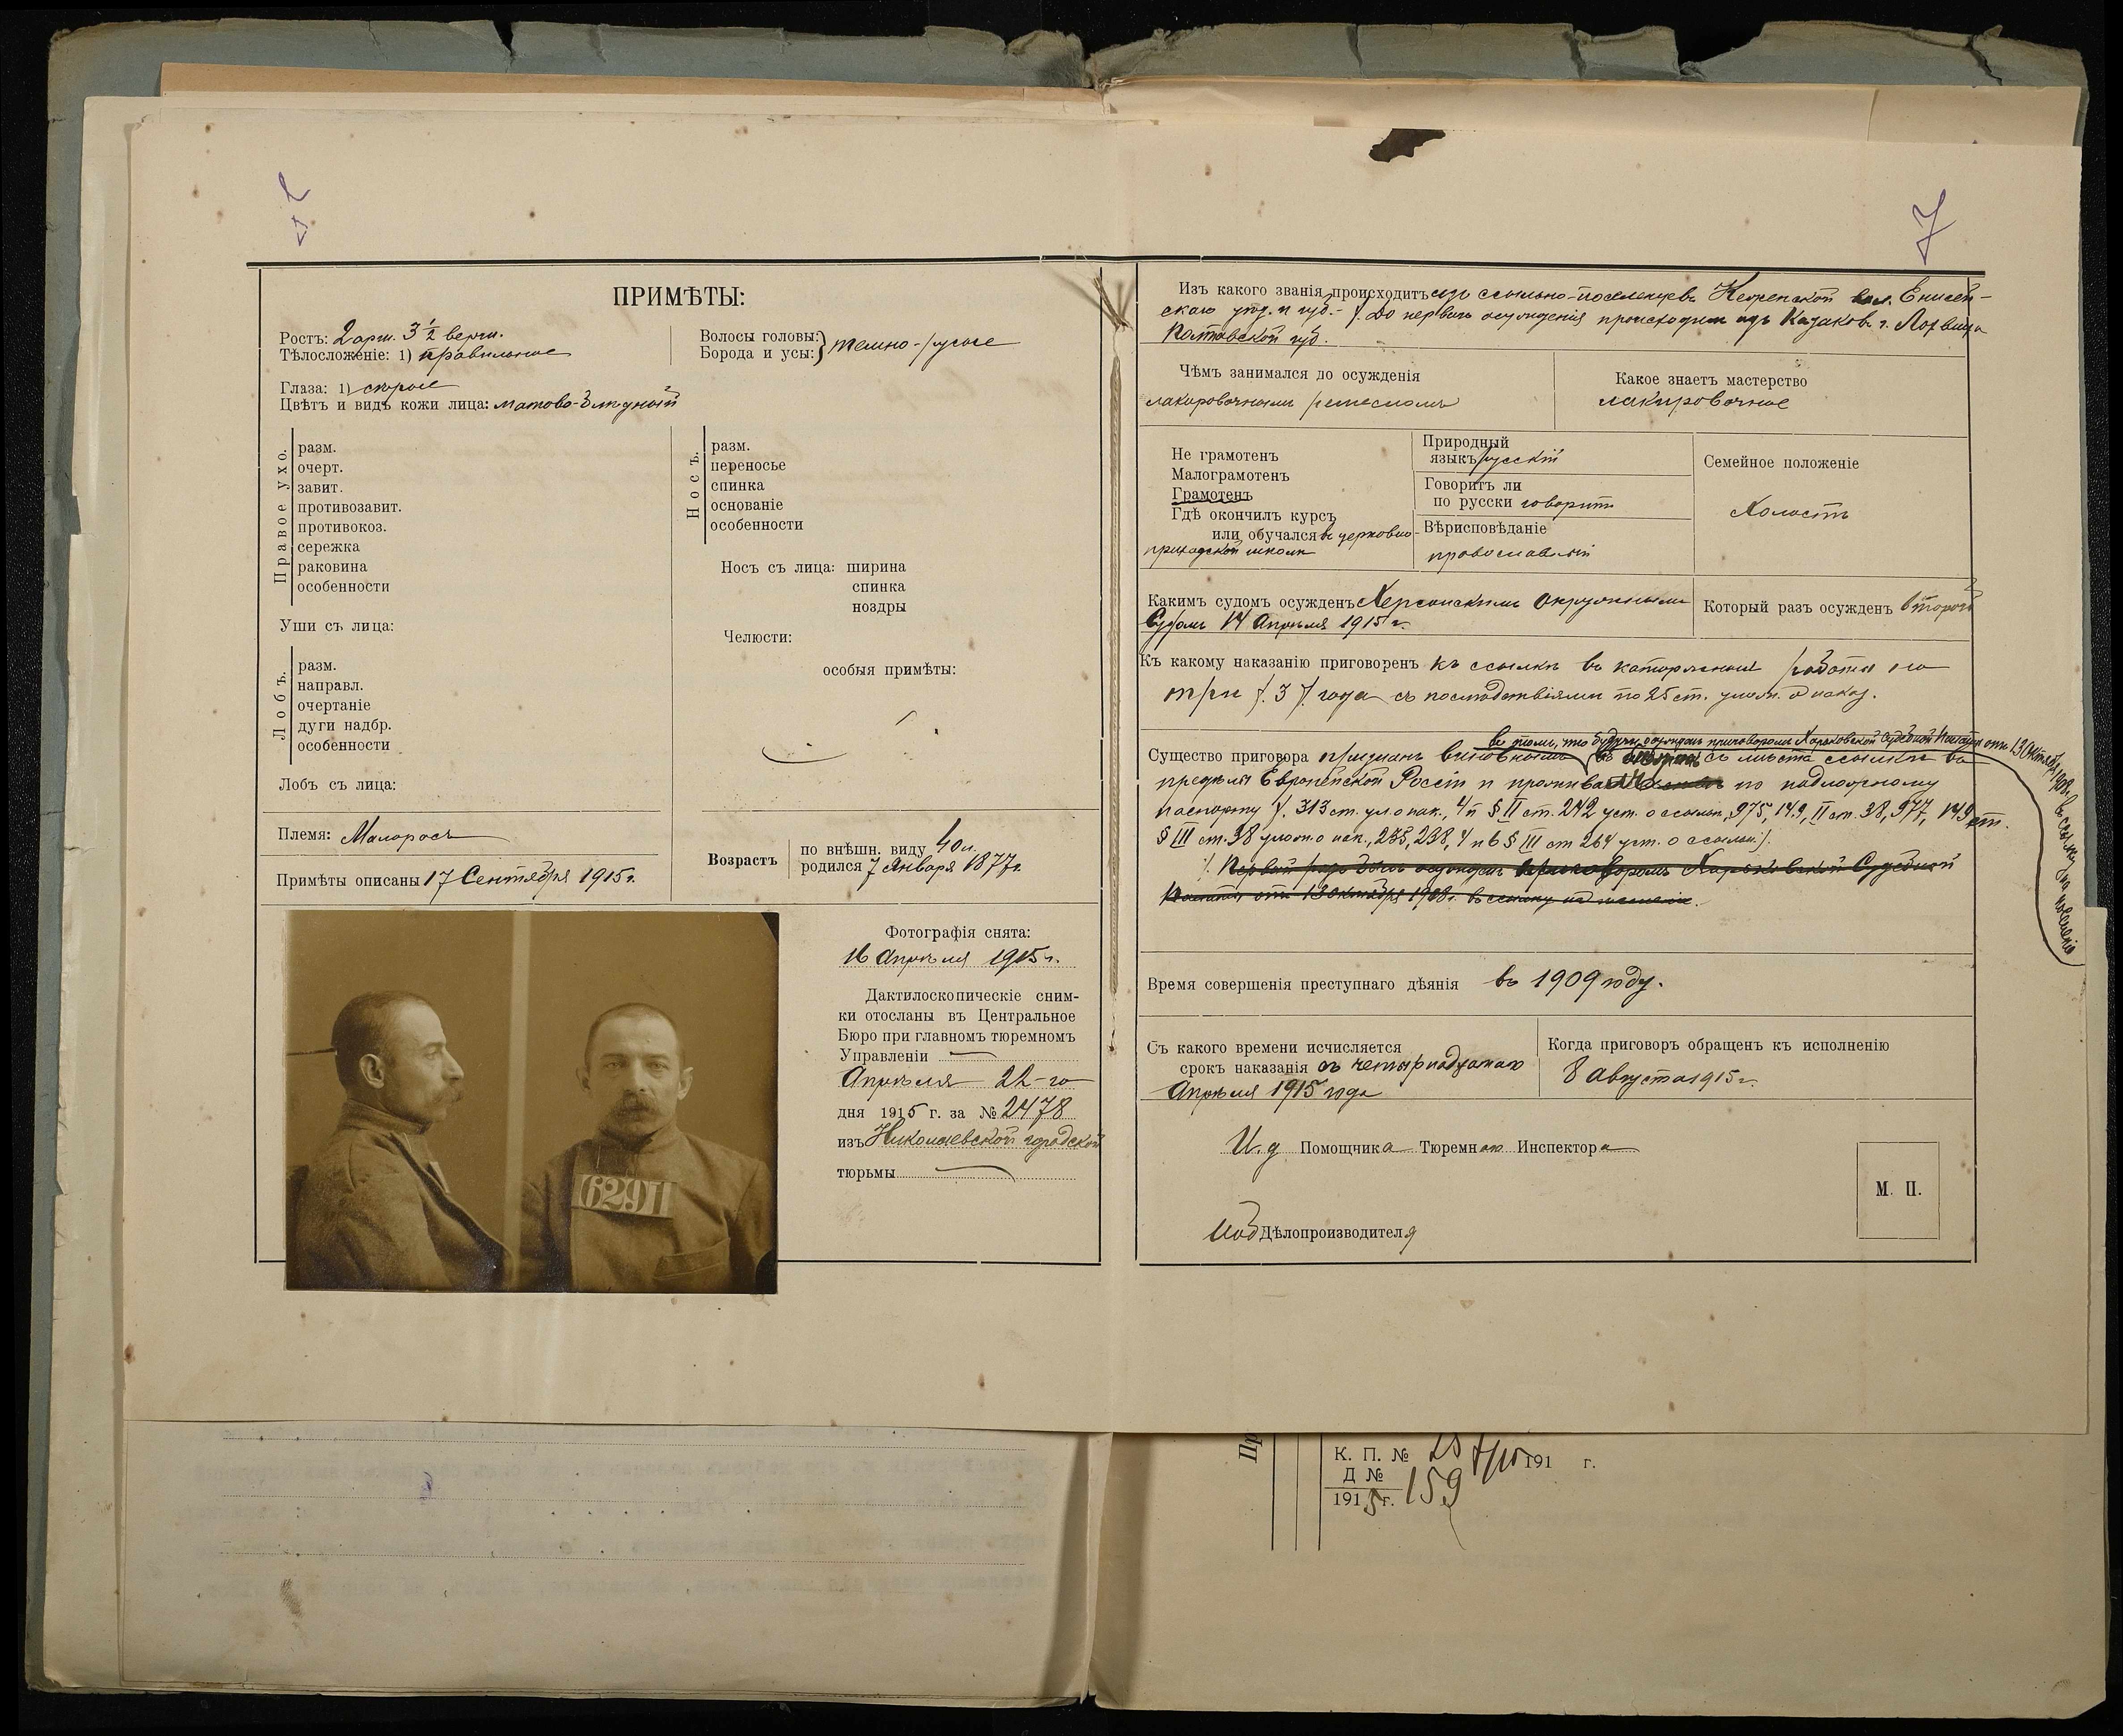 7
ПРИМѢТЫ:
Ростъ: 2 арш. 3 ½ верш.
Тѣлосложеніе: 1) правильное
Волосы головы:
Борода и усы: } темно-русые
Глаза: 1) серые
Цвѣтъ и видъ кожи лица: матово-блѣдный
Правое ухо.
разм.
очерт.
завит.
противозавит.
противокоз.
сережка
раковина
особенности
Носъ.
разм.
переносье
спинка
основаніе
особенности
Носъ съ лица: ширина
спинка
ноздры
Уши съ лица:
Челюсти:
Лобъ.
разм.
направл.
очертаніе
дуги надбр.
особенности
особыя примѣты:
Лобъ съ лица:
Племя: Малороссъ
Примѣты описаны 17 Сентября 1915 г.
Возрастъ
по внѣшн. виду 40 л.
родился 7 Января 1877 г.
Фотографія снята:
16 Апрѣля 1915 г.
Дактилоскопическіе сним-
ки отосланы въ Центральное
Бюро при главномъ тюремномъ
Управленіи
Апрѣля 22-го
дня 1915 г. за № 2478
изъ Николаевской городской
тюрьмы
6291
Изъ какого званія происходитъ изъ ссыльно-поселенцевъ Кежемской вол. Енисей-
скаго уѣзд. и губ. - /. До перваго осужденія происходилъ изъ Казаковъ г. Лохвица
Полтавской губ.
Чѣмъ занимался до осужденія
лакировочнымъ ремесломъ
Какое знаетъ мастерство
лакировочное
Не грамотенъ
Малограмотенъ
Грамотенъ
Гдѣ окончилъ курсъ
или обучался въ церковно-
приходской школѣ
Природный
языкъ русскій
Говоритъ ли
по русски говоритъ
Вѣрисповѣданіе
православный
Семейное положеніе
Холостъ
Какимъ судомъ осужденъ Херсонскимъ Окружнымъ
Судомъ 14 Апрѣля 1915 г.
Который разъ осужденъ второй
Къ какому наказанію приговоренъ къ ссылкѣ въ каторжныя работы на
три /. 3 /. года съ послѣдствіями по 25 ст. улож. о наказ.
въ томъ, что будучи осужденъ приговоромъ Харьковской Судебной Палаты отъ 13 Октября 1908 г. въ ссылку на поселеніе
Существо приговора признанъ виновнымъ съ мѣста ссылки въ
предѣлы Европейской Россіи и прожива по подложному
паспорту /. 313 ст. ул. о нак., 4 п § II ст. 242 уст. о ссыльн, 975, 149, II ст. 38, 977, 149 ст.
§ III ст. 38 улож. о нак., 235, 238, 4 п 6 § III ст 264 уст. о ссыльн. /.
/. Первый разъ былъ осужденъ приговоромъ Харьковской Судебной
Палаты отъ 13 Октября 1908 г. въ ссылку на поселеніе.
Время совершенія преступнаго дѣянія въ 1909 году.
Съ какого времени исчисляется
срокъ наказанія съ четырнадцатаго
Апрѣля 1915 года
Когда приговоръ обращенъ къ исполненію
8 Августа 1915 г.
И. д Помощника Тюремнаго Инспектора
М. П.
Дѣлопроизводителя
Пр
К. П. № 191 г.
Д №
1915 г. 159